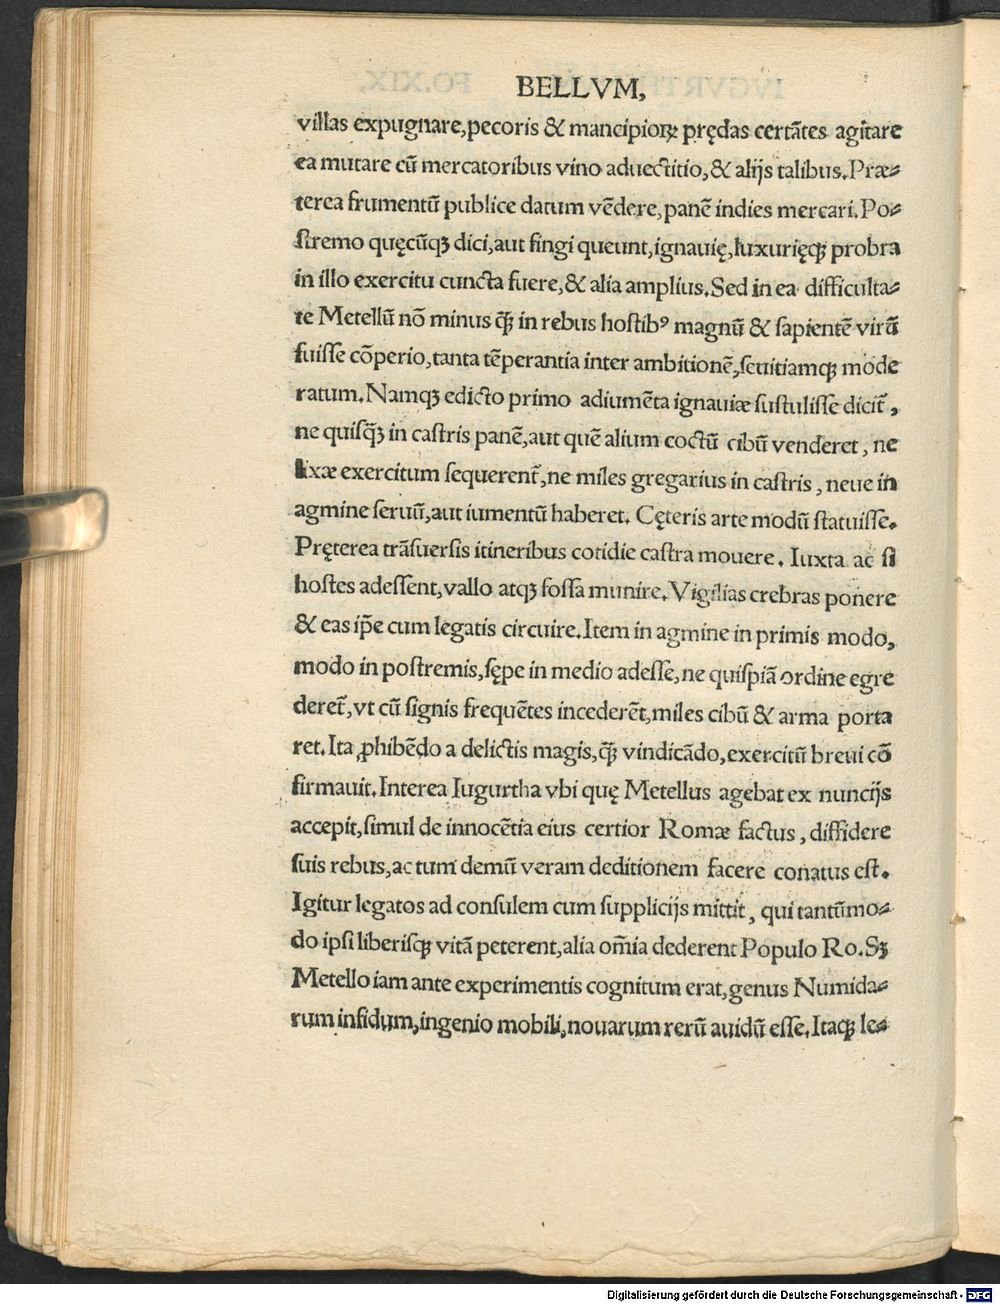 BELLVM,
villas expugnare,pecoris & mancipioꝝ prędas certātes agitare
ea mutare cū mercatoribus vino aduectitio,& alijs talibus.Præ⸗
terea frumentū publice datum vēdere,panē indies mercari.Po⸗
ſtremo quęcūqꝫ dici,aut fingi queunt,ignauię,luxurięqꝫ probra
in illo exercitu cuncta fuere,& alia amplius.Sed in ea difficulta⸗
te Metellū nō minus q̄ꝫ in rebus hoſtibꝰ magnū & ſapientē virū
fuiſſe cōperio,tanta tēperantia inter ambitionē,ſeuitiamqꝫ mode
ratum.Namqꝫ edicto primo adiumēta ignauiæ ſuſtuliſſe dicit̃,
ne quiſq̄ꝫ in caſtris panē,aut quē alium coctū cibū venderet, ne
lixæ exercitum ſequerent̃,ne miles gregarius in caſtris, neue in
agmine ſeruū,aut iumentū haberet. Cęteris arte modū ſtatuiſſe.
Pręterea trāſuerſis itineribus cotidie caſtra mouere. Iuxta ac ſi
hoſtes adeſſent,vallo atqꝫ foſſa munire.Vigilias crebras ponere
& eas ip̄e cum legatis circuire.Item in agmine in primis modo,
modo in poſtremis,ſępe in medio adeſſe,ne quiſpiā ordine egre
deret̃,vt cū ſignis frequētes incederēt,miles cibū & arma porta
ret.Ita ꝓhibēdo a delictis magis,q̄ꝫ vindicādo,exercitū breui cō
firmauit.Interea Iugurtha vbi quę Metellus agebat ex nuncijs
accepit,ſimul de innocētia eius certior Romæ factus, diffidere
ſuis rebus,ac tum demū veram deditionem facere conatus eſt.
Igitur legatos ad conſulem cum ſupplicijs mittit, qui tantūmo⸗
do ipſi liberiſqꝫ vitā peterent,alia om̄ia dederent Populo Ro.Sꝫ
Metello iam ante experimentis cognitum erat,genus Numida⸗
rum infidum,ingenio mobili,nouarum rerū auidū eſſe.Itaqꝫ le⸗
Digitalisierung gefördert durch die Deutsche Forschungsgemeinschaft - DFG